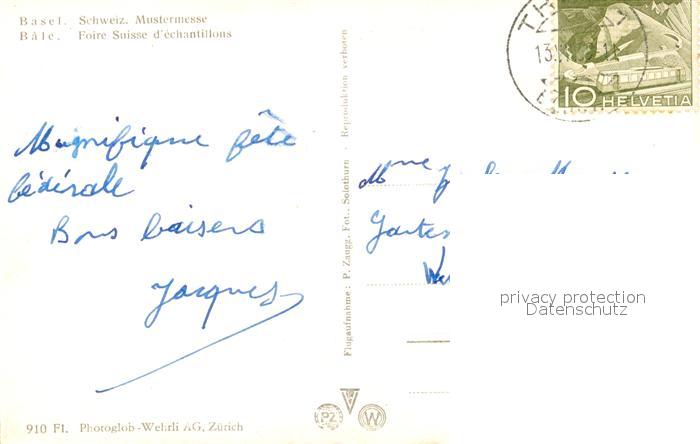 Basel. Schweiz. Mustermesse
Bâle. Foire Suisse d'échantillons
Magnifique fête
fédérale
Bons baisers
Jacques
Flugaufnahme: P. Zaugg, Fot., Solothurn - Reproduktion verboten
10 HELVETIA
13.
Mme
privacy protection
Datenschutz
PZ
W
910 Fl. Photoglob-Wehrli AG, Zürich